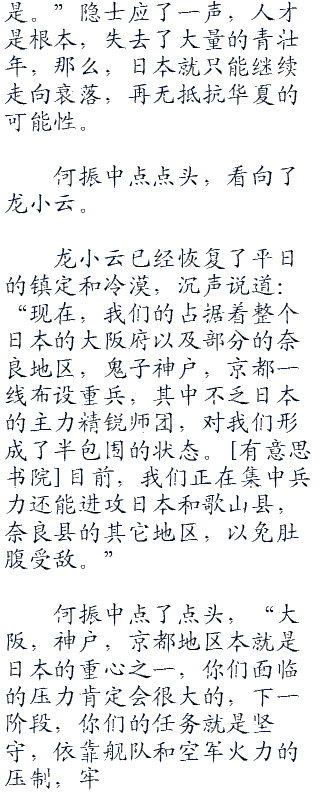 是。”隐士应了一声，人才
是根本，失去了大量的青壮
年，那么，日本就只能继续
走向衰落，再无抵抗华夏的
可能性。
何振中点点头，看向了
龙小云。
龙小云已经恢复了平日
的镇定和冷漠，沉声说道：
“现在，我们的占据着整个
日本的大阪府以及部分的奈
良地区，鬼子神户，京都一
线布设重兵，其中不乏日本
的主力精锐师团，对我们形
成了半包围的状态。[有意思
书院]目前，我们正在集中兵
力还能进攻日本和歌山县，
奈良县的其它地区，以免肚
腹受敌。”
何振中点了点头，“大
阪，神户，京都地区本就是
日本的重心之一，你们面临
的压力肯定会很大的，下一
阶段，你们的任务就是坚
守，依靠舰队和空军火力的
压制，牢